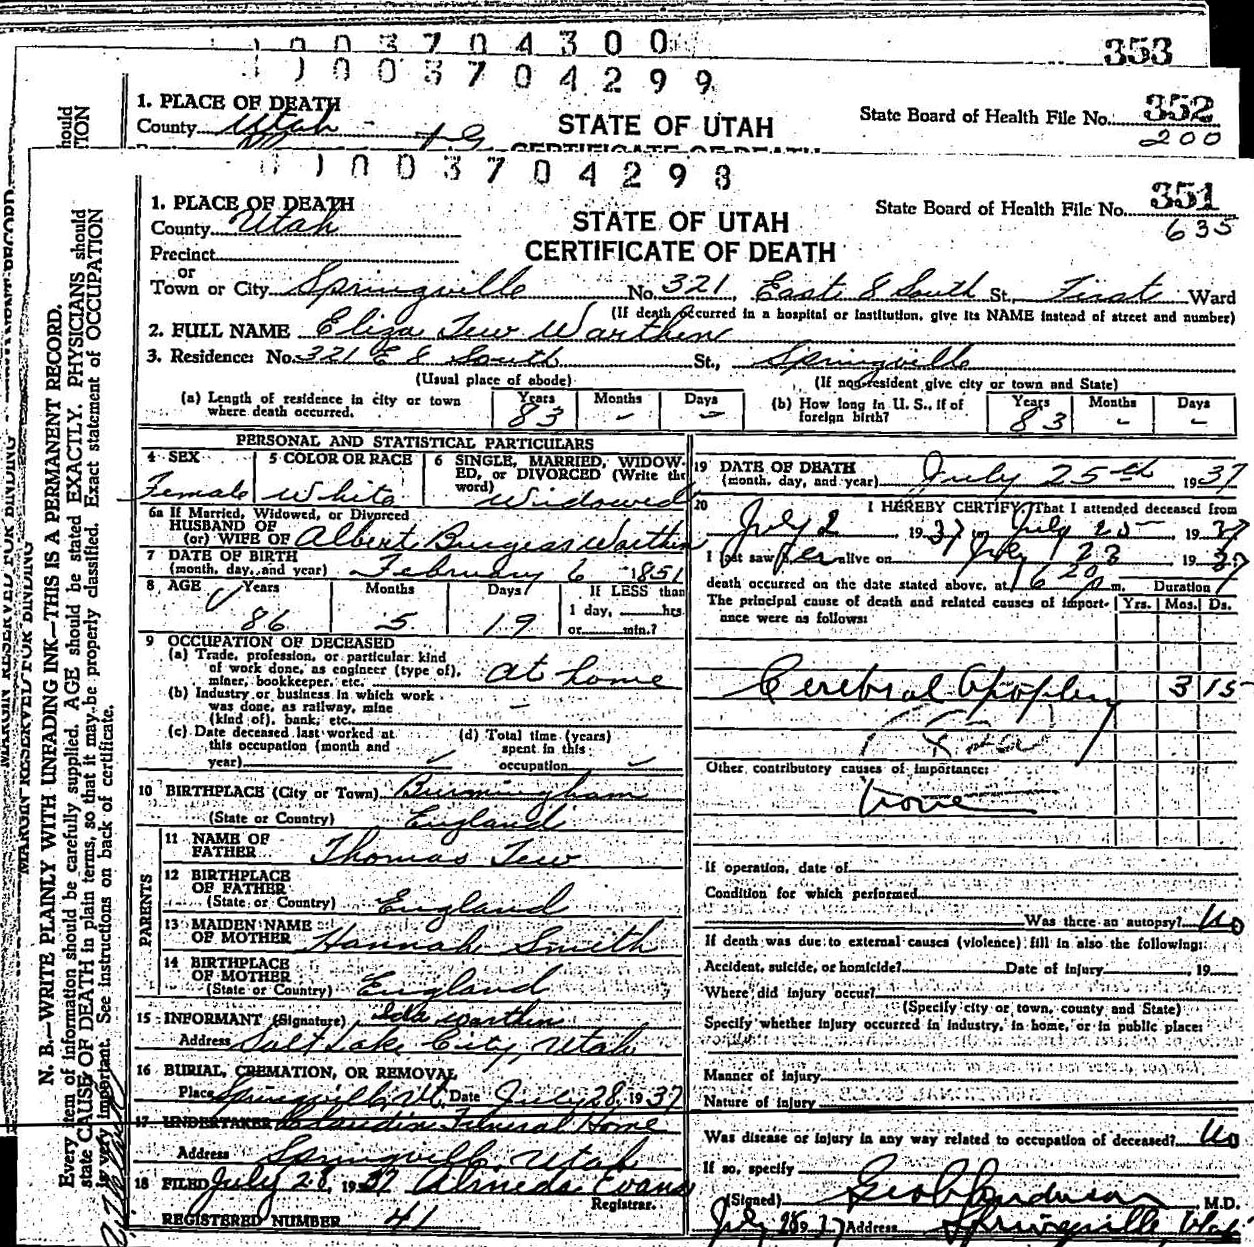 1003704300
353
1003704299
1. PLACE OF DEATH
County Utah
STATE OF UTAH
State Board of Health File No. 352
200
CERTIFICATE OF DEATH
1003704298
1. PLACE OF DEATH
County Utah
Precinct
or
Town or City Springville No. 321, East 8 South St., First Ward
STATE OF UTAH
CERTIFICATE OF DEATH
State Board of Health File No. 351
635
(If death occurred in a hospital or institution, give its NAME instead of street and number)
2. FULL NAME Eliza Tew Warthen
3. Residence: No. 321 E 8 South St., Springville
(Usual place of abode) (If non-resident give city or town and State)
(a) Length of residence in city or town where death occurred. Years 83 Months - Days -
(b) How long in U. S., if of foreign birth? Years 83 Months - Days -
PERSONAL AND STATISTICAL PARTICULARS
4 SEX Female
5 COLOR OR RACE White
6 SINGLE, MARRIED, WIDOWED, or DIVORCED (Write the word) Widowed
6a If Married, Widowed, or Divorced
HUSBAND OF
(or) WIFE OF Albert Burgess Warthen
7 DATE OF BIRTH
(month, day, and year) February 6 1851
8 AGE Years 86 Months 5 Days 19 If LESS than
1 day, hrs.
or min.?
9 OCCUPATION OF DECEASED
(a) Trade, profession, or particular kind
of work done, as engineer (type of),
miner, bookkeeper, etc. at home
(b) Industry or business in which work
was done, as railway, mine
(kind of), bank, etc. -
(c) Date deceased last worked at
this occupation (month and
year)
(d) Total time (years)
spent in this
occupation
10 BIRTHPLACE (City or Town) Burmingham
(State or Country) England
PARENTS
11 NAME OF
FATHER Thomas Tew
12 BIRTHPLACE
OF FATHER
(State or Country) England
13 MAIDEN NAME
OF MOTHER Hannah Smith
14 BIRTHPLACE
OF MOTHER
(State or Country) England
15 INFORMANT (Signature) Ida Warthen
Address Salt Lake City, Utah
16 BURIAL, CREMATION, OR REMOVAL
Place Springville, Ut. Date July 28, 1937
17 UNDERTAKER Funeral Home
Address Springville, Utah
18 FILED July 28, 1937 Almeda Evans
Registrar.
REGISTERED NUMBER 41
19 DATE OF DEATH
(month, day, and year) July 25th 1937
20 I HEREBY CERTIFY, That I attended deceased from
July 2 1937 July 25 1937
I last saw her alive on July 23 1937
death occurred on the date stated above, at 6 20 p m. Duration
The principal cause of death and related causes of importance were as follows: Yrs. Mos. Ds.
Cerebral Apoplexy 3 15
Other contributory causes of importance:
None
If operation, date of
Condition for which performed
Was there an autopsy? no
If death was due to external causes (violence) fill in also the following:
Accident, suicide, or homicide? Date of injury , 19
Where did injury occur?
(Specify city or town, county and State)
Specify whether injury occurred in industry, in home, or in public place:
Manner of injury
Nature of injury
Was disease or injury in any way related to occupation of deceased? no
If so, specify
(Signed) Geo Anderson M.D.
July 28 1937 Address Springville, Utah
MARGIN RESERVED FOR BINDING
N. B.—WRITE PLAINLY WITH UNFADING INK—THIS IS A PERMANENT RECORD.
Every item of information should be carefully supplied. AGE should be stated EXACTLY. PHYSICIANS should
state CAUSE OF DEATH in plain terms, so that it may be properly classified. Exact statement of OCCUPATION
is very important. See instructions on back of certificate.